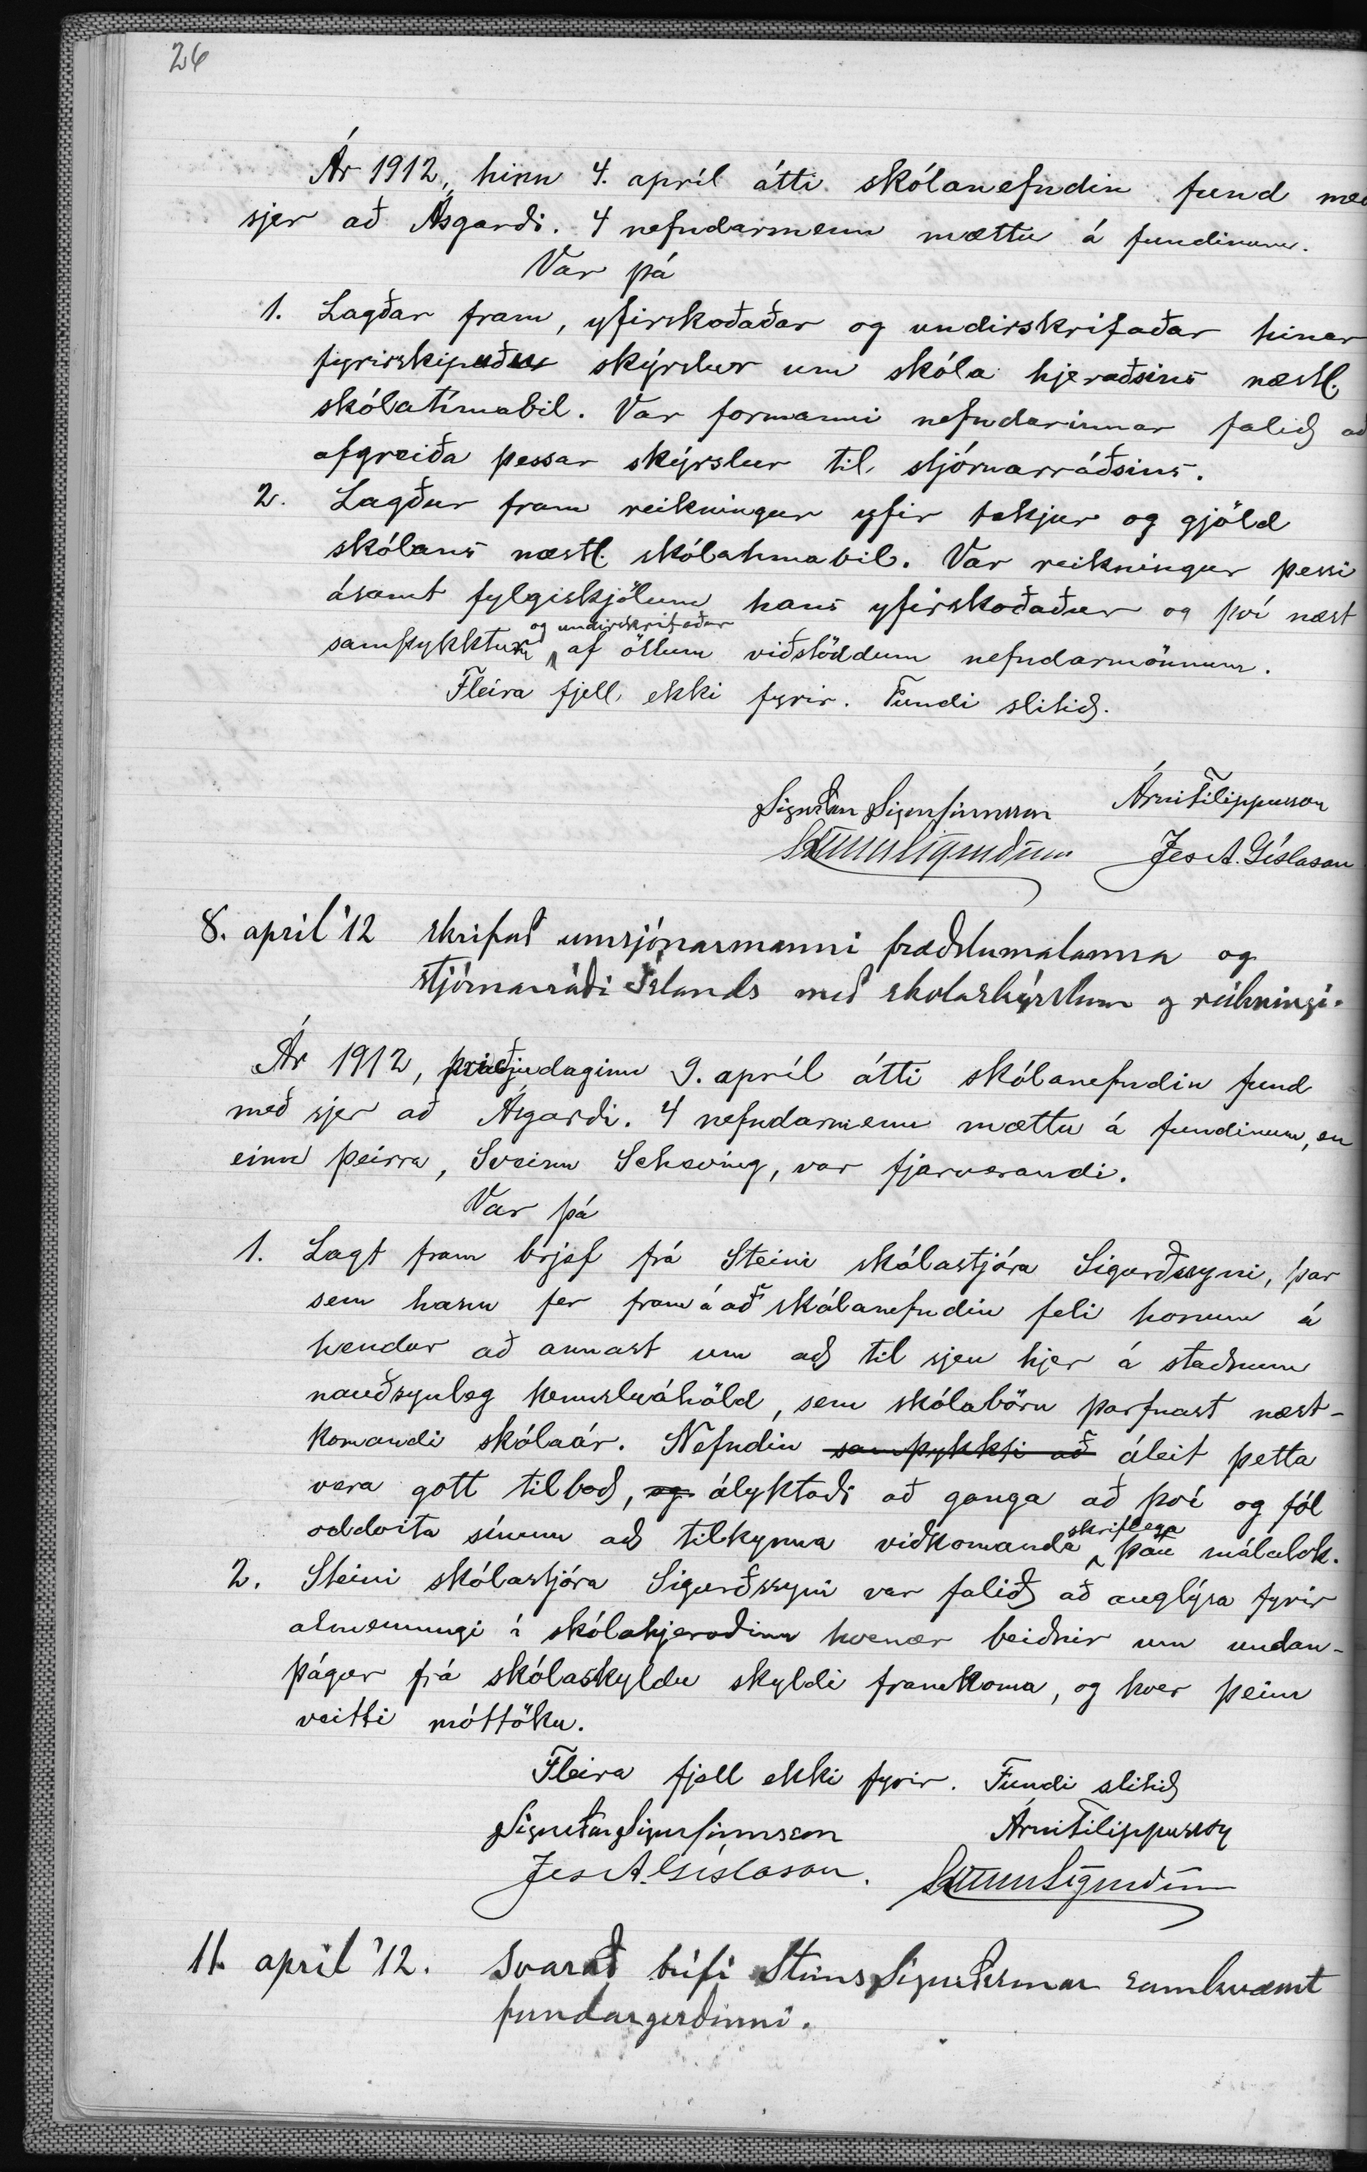 26
Ár 1912, hinn 4. apríl átti skólanefndin fund með
sjer að Ásgarði. 4 nefndarmenn mættu á fundinum.
Var þá
1. Lagðar fram, yfirskoðaðar og undirskrifaðar hinar
fyrirskipuðu skýrslur um skóla hjeraðsins næstl.
skólatímabil. Var formanni nefndarinnar falið að
afgreiða þessar skýrslur til stjórnarráðsins.
2. Lagður fram reikningur yfir tekjur og gjöld
skólans næstl. skólatímabil. Var reikningur þessi
ásamt fylgiskjölum hans yfirskoðaður og því næst
samþykktur og undirskrifaður af öllum viðstöddum nefndarmönnum.
Fleira fjell ekki fyrir. Fundi slitið.
Sigurður Sigurfinnsson Árni Filippusson
Gunnar Ólafsson Jes A. Gíslason
8. apríl '12 skrifað umsjónarmanni fræðslumálanna og
stjórnarráði Íslands með skólaskýrslum og reikningi.
Ár 1912, þriðjudaginn 9. apríl átti skólanefndin fund
með sjer að Ásgarði. 4 nefndarmenn mættu á fundinum, en
einn þeirra, Sveinn Scheving, var fjarverandi.
Var þá
1. Lagt fram brjef frá Steini skólastjóra Sigurðssyni, þar
sem hann fer fram á að skólanefndin feli honum á
hendur að annast um að til sjeu hjer á staðnum
nauðsynleg kennsluáhöld, sem skólabörn þarfnast næst-
komandi skólaár. Nefndin samþykkti að áleit þetta
vera gott tilboð, og ályktaði að ganga að því og fól
oddvita sínum að tilkynna viðkomanda skriflega þau málalok.
2. Steini skólastjóra Sigurðssyni var falið að auglýsa fyrir
almenningi í skólahjeraðinu hvenær beiðnir um undan-
þágur frá skólaskyldu skyldi framkoma, og hver þeim
veitti móttöku.
Fleira fjell ekki fyrir. Fundi slitið
Sigurður Sigurfinnsson Árni Filippusson
Jes A. Gíslason.
11. apríl '12. Svarað brjefi Steins Sigurðssonar samkvæmt
fundargerðinni.